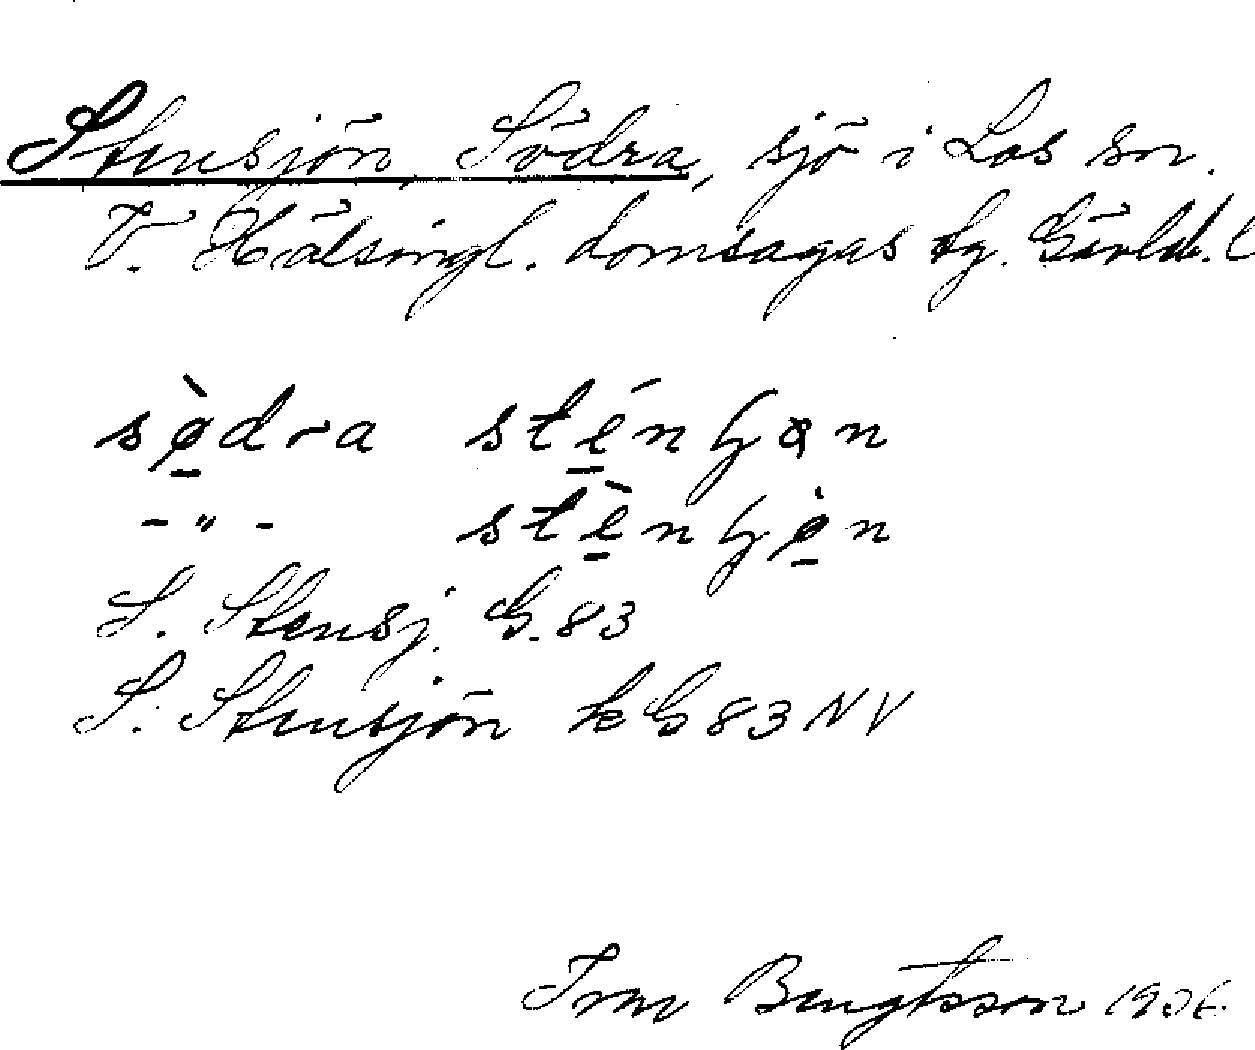 Stensjön, Södra, sjö i Los sn.
V. Hälsingl. domsagas tg. Gävleb. l
sø̠̀dra sté̠nɧøn
-"- stè̠nɧø̠̀n
S. Stensj. G. 83
S. Stensjön k G 83 NV
Ivar Bengtsson 1936.